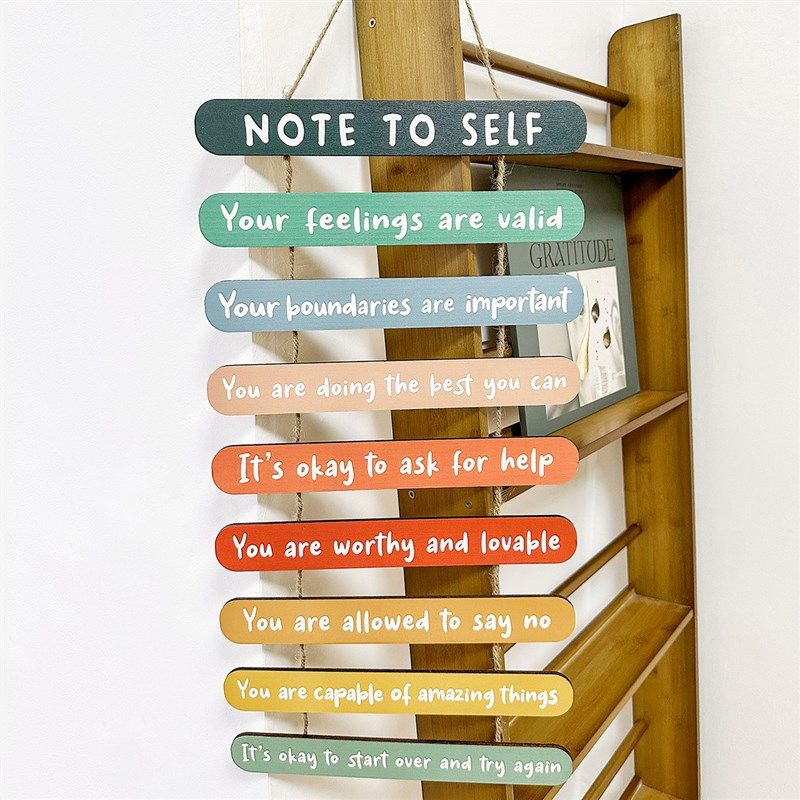 NOTE TO SELF
Your feelings are valid
Your boundaries are important
You are doing the best you can
It's okay to ask for help
You are worthy and lovable
You are allowed to say no
You are capable of amazing things
It's okay to start over and try again
GRATITUDE